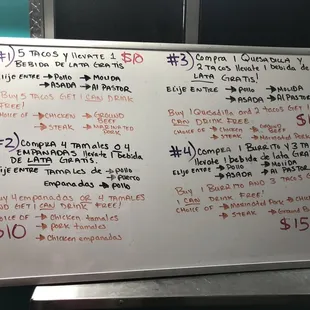 #1) 5 TACOS y llevate 1 $10
BEBIDA DE LATA GRATIS
Elije ENTRE → Pollo → MOLIDA
→ ASADA → Al PASTOR
Buy 5 TACOS GET 1 CAN DRINK
FREE!
CHOICE OF → CHICKEN → GROUND BEEF
→ STEAK → MARINATED PORK
#2) Compra 4 TAMALES O 4
EMPANADAS llevate 1 Bebida
DE LATA GRATIS.
Elije ENTRE TAMALES DE → Pollo
→ Puerco
Empanadas → pollo
Buy 4 empanadas OR 4 TAMALES
AND GET 1 CAN DRINK FREE!
CHOICE OF → Chicken tamales
→ Pork tamales
→ Chicken empanadas
$10
#3) Compra 1 QUESADILLA Y
2 TACOS llevate 1 bebida de
LATA GRATIS!
Elije ENTRE → Pollo → MOLIDA
→ ASADA → Al PASTOR
Buy 1 Quesadilla and 2 tacos Get 1
CAN DRINK FREE!
Choice of → Chicken
→ STEAK
#4) Compra 1 Burrito y 3 Ta
llevate 1 bebida de lata Gra
Elije Entre → Pollo → Molida
→ ASADA → Al PASTOR
Buy 1 Burrito AND 3 TACOS
1 CAN DRINK FREE!
Choice of → Marinated Pork
→ STEAK → Ground
$15